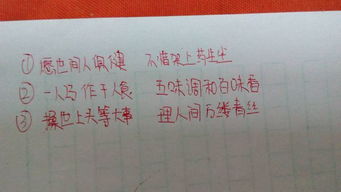 ① 愿世间人俱健 不惜架上药生尘
② 一人巧作千人食 五味调和百味香
③ 操世上头等大事 理人间万缕青丝